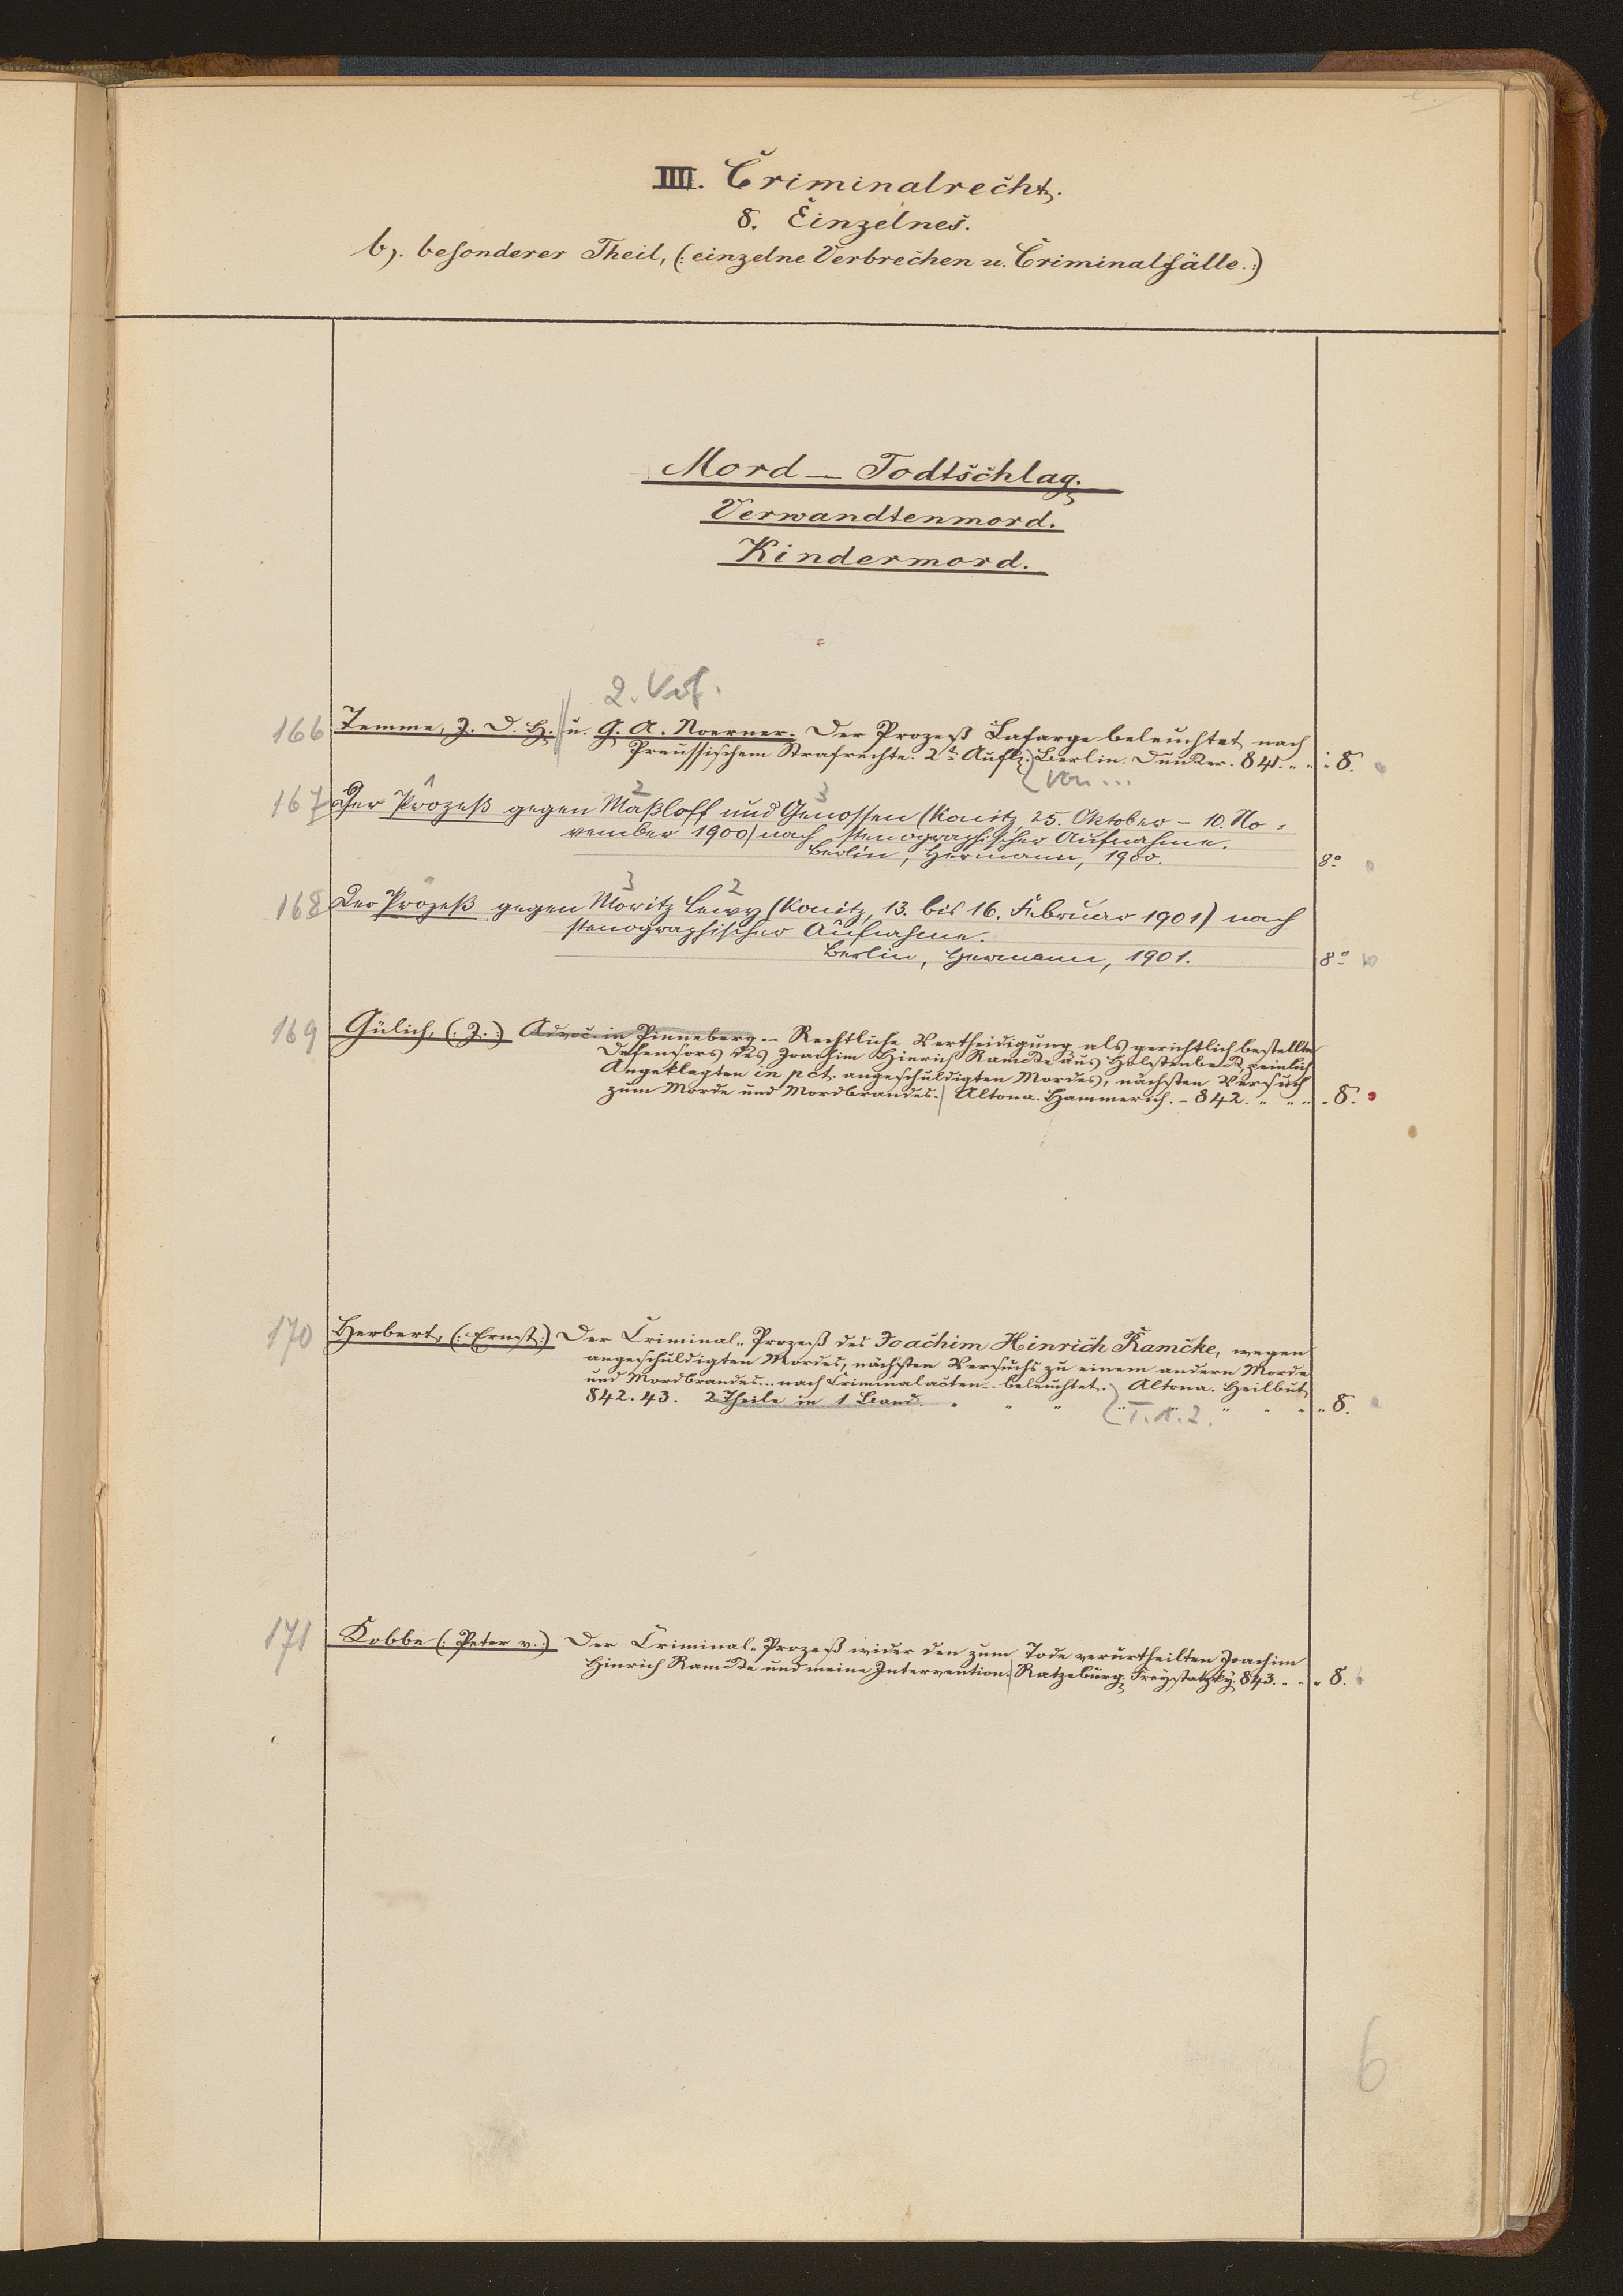 IIII. Criminalrecht.
8. Einzelnes.
b). besonderer Theil, (: einzelne Verbrechen u. Criminalfälle. :)
Mord — Todtschlag.
Verwandtenmord.
Kindermord.
2. Verf.
166 Temme, J. D. H. u. G. A. Noerner. Der Prozeß Lafarge beleuchtet nach
Preussischem Strafrechte. 2te Aufl. Berlin. Duncker. 841. " " " 8.
von ...
1 2 3
167 Der Prozeß gegen Maßloff und Genossen (Konitz, 25. Oktober – 10. No-
vember 1900) nach stenographischer Aufnahme.
Berlin, Hermann, 1900. 8°
3 2
168 Der Prozeß gegen Moritz Lewy (Konitz, 13. bis 16. Februar 1901) nach
stenographischer Aufnahme.
Berlin, Hermann, 1901. 8°
169 Gülich, (: J. :) Advoc. in Pinneberg. – Rechtliche Vertheidigung als gerichtlich bestellter
Defensors des Joachim Hinrich Ramcke aus Holstenbeck, peinlich
Angeklagten in pct. angeschuldigten Mordes, nächsten Versuch
zum Morde und Mordbrandes. Altona. Hammerich. – 842. " " " " 8.
170 Herbert, (: Ernst :) Der Criminal-Prozeß des Joachim Hinrich Ramcke, wegen
angeschuldigten Mordes, nächsten Versuchs zu einem andern Morde
und Mordbrandes... nach Criminalacten... beleuchtet. Altona. Heilbut.
842. 43. 2 Theile in 1 Band. " " " " " " " " 8.
T. 1. 2.
171 Kobbe (: Peter v. :) Der Criminal-Prozeß wider den zum Tode verurtheilten Joachim
Hinrich Ramcke und meine Intervention. Ratzeburg. Freystatzky. 843. " " " 8.
6